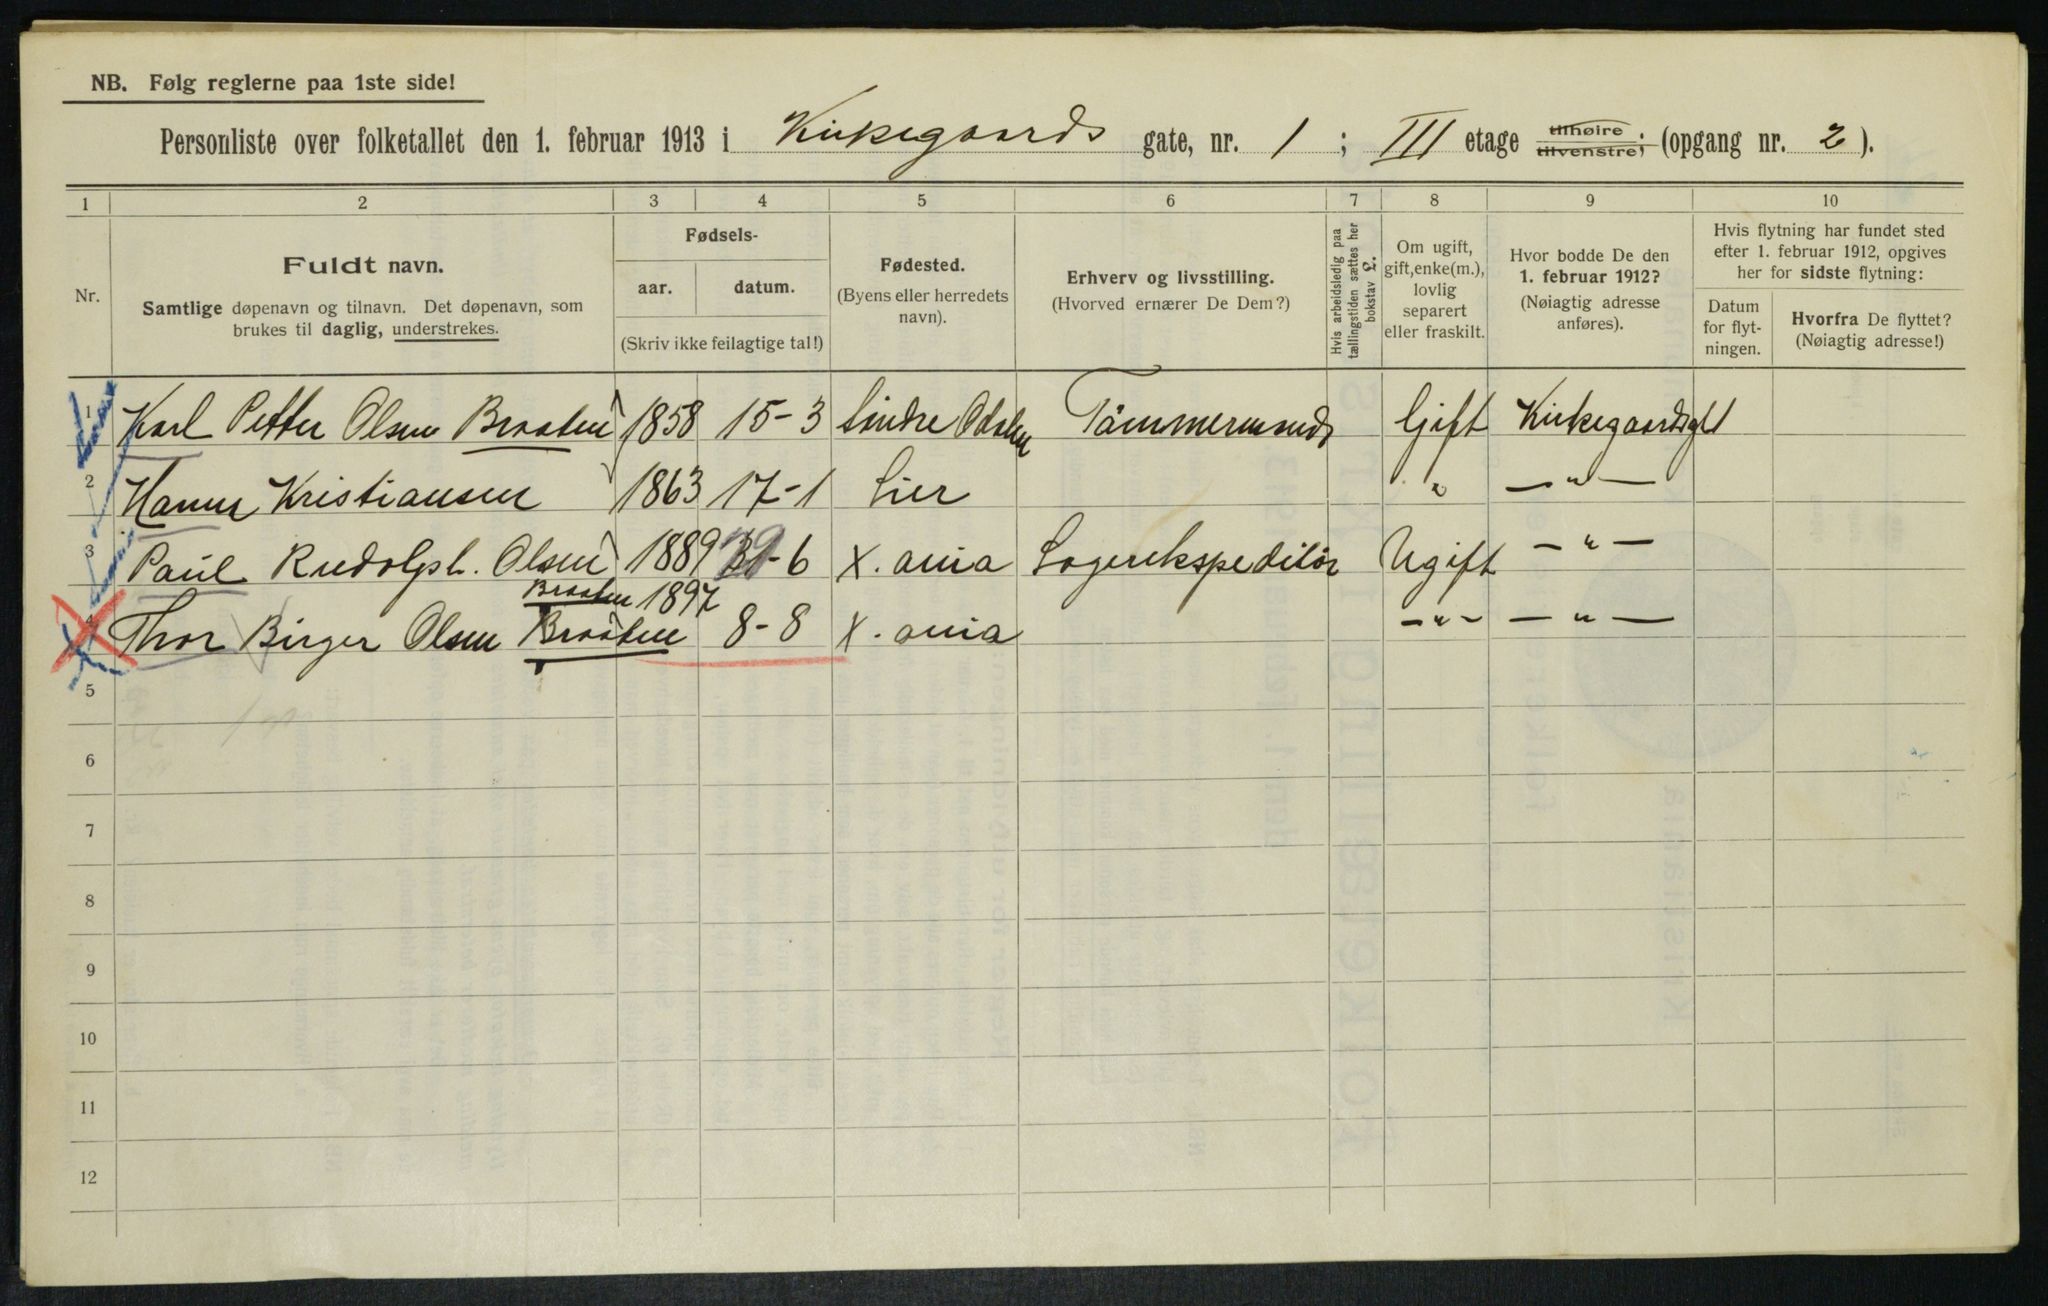 NB. Følg reglerne paa 1ste side!
Personliste over folketallet den 1. februar 1913 i Kirkegaards gate, nr. 1 ; III etage tilhøire tilvenstre; (opgang nr. 2 ).
1 2 3 4 5 6 7 8 9 10
Nr.
Fuldt navn.
Samtlige døpenavn og tilnavn. Det døpenavn, som
brukes til daglig, understrekes.
Fødsels-
aar. datum.
(Skriv ikke feilagtige tal!)
Fødested.
(Byens eller herredets
navn).
Erhverv og livsstilling.
(Hvorved ernærer De Dem?)
Hvis arbeidsledig paa
tællingstiden sættes her
bokstav £.
Om ugift,
gift, enke(m.),
lovlig
separert
eller fraskilt.
Hvor bodde De den
1. februar 1912?
(Nøiagtig adresse
anføres).
Hvis flytning har fundet sted
efter 1. februar 1912, opgives
her for sidste flytning:
Datum
for flyt-
ningen.
Hvorfra De flyttet?
(Nøiagtig adresse!)
1 Karl Petter Olsen Braaten 1858 15-3 Søndre Odalen Tømmermand Gift Kirkegaardsgt 1
2 Hanna Kristiansen 1863 17-1 Lier " — " —
3 Paul Rudolph. Olsen Braaten 1889 -6 X.ania Lagerekspeditør Ugift — " —
4 Thor Birger Olsen Braaten 1897 8-8 X.ania - " - — " —
5
6
7
8
9
10
11
12